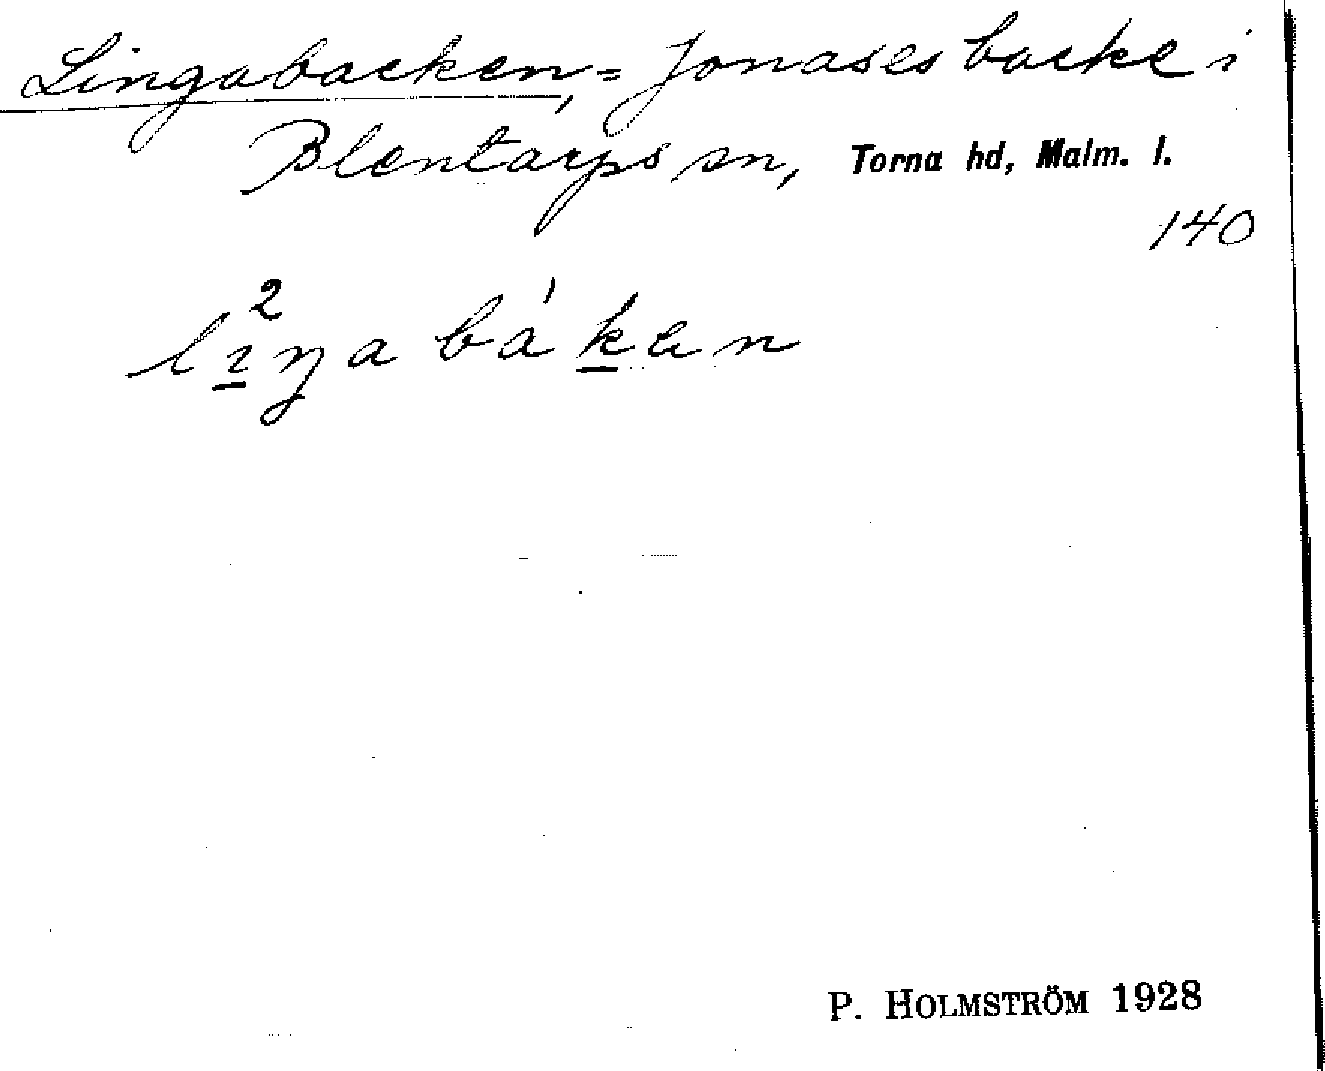 Lingabacken, = Jonases backe i
Blentarps sn, Torna hd, Malm. l.
140
lı²ŋa bákan
P. HOLMSTRÖM 1928